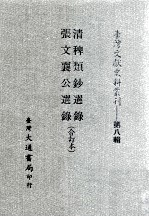 臺灣文獻史料叢刊 第八輯
清稗類鈔選錄
張文襄公選錄
(合訂本)
臺灣大通書局印行